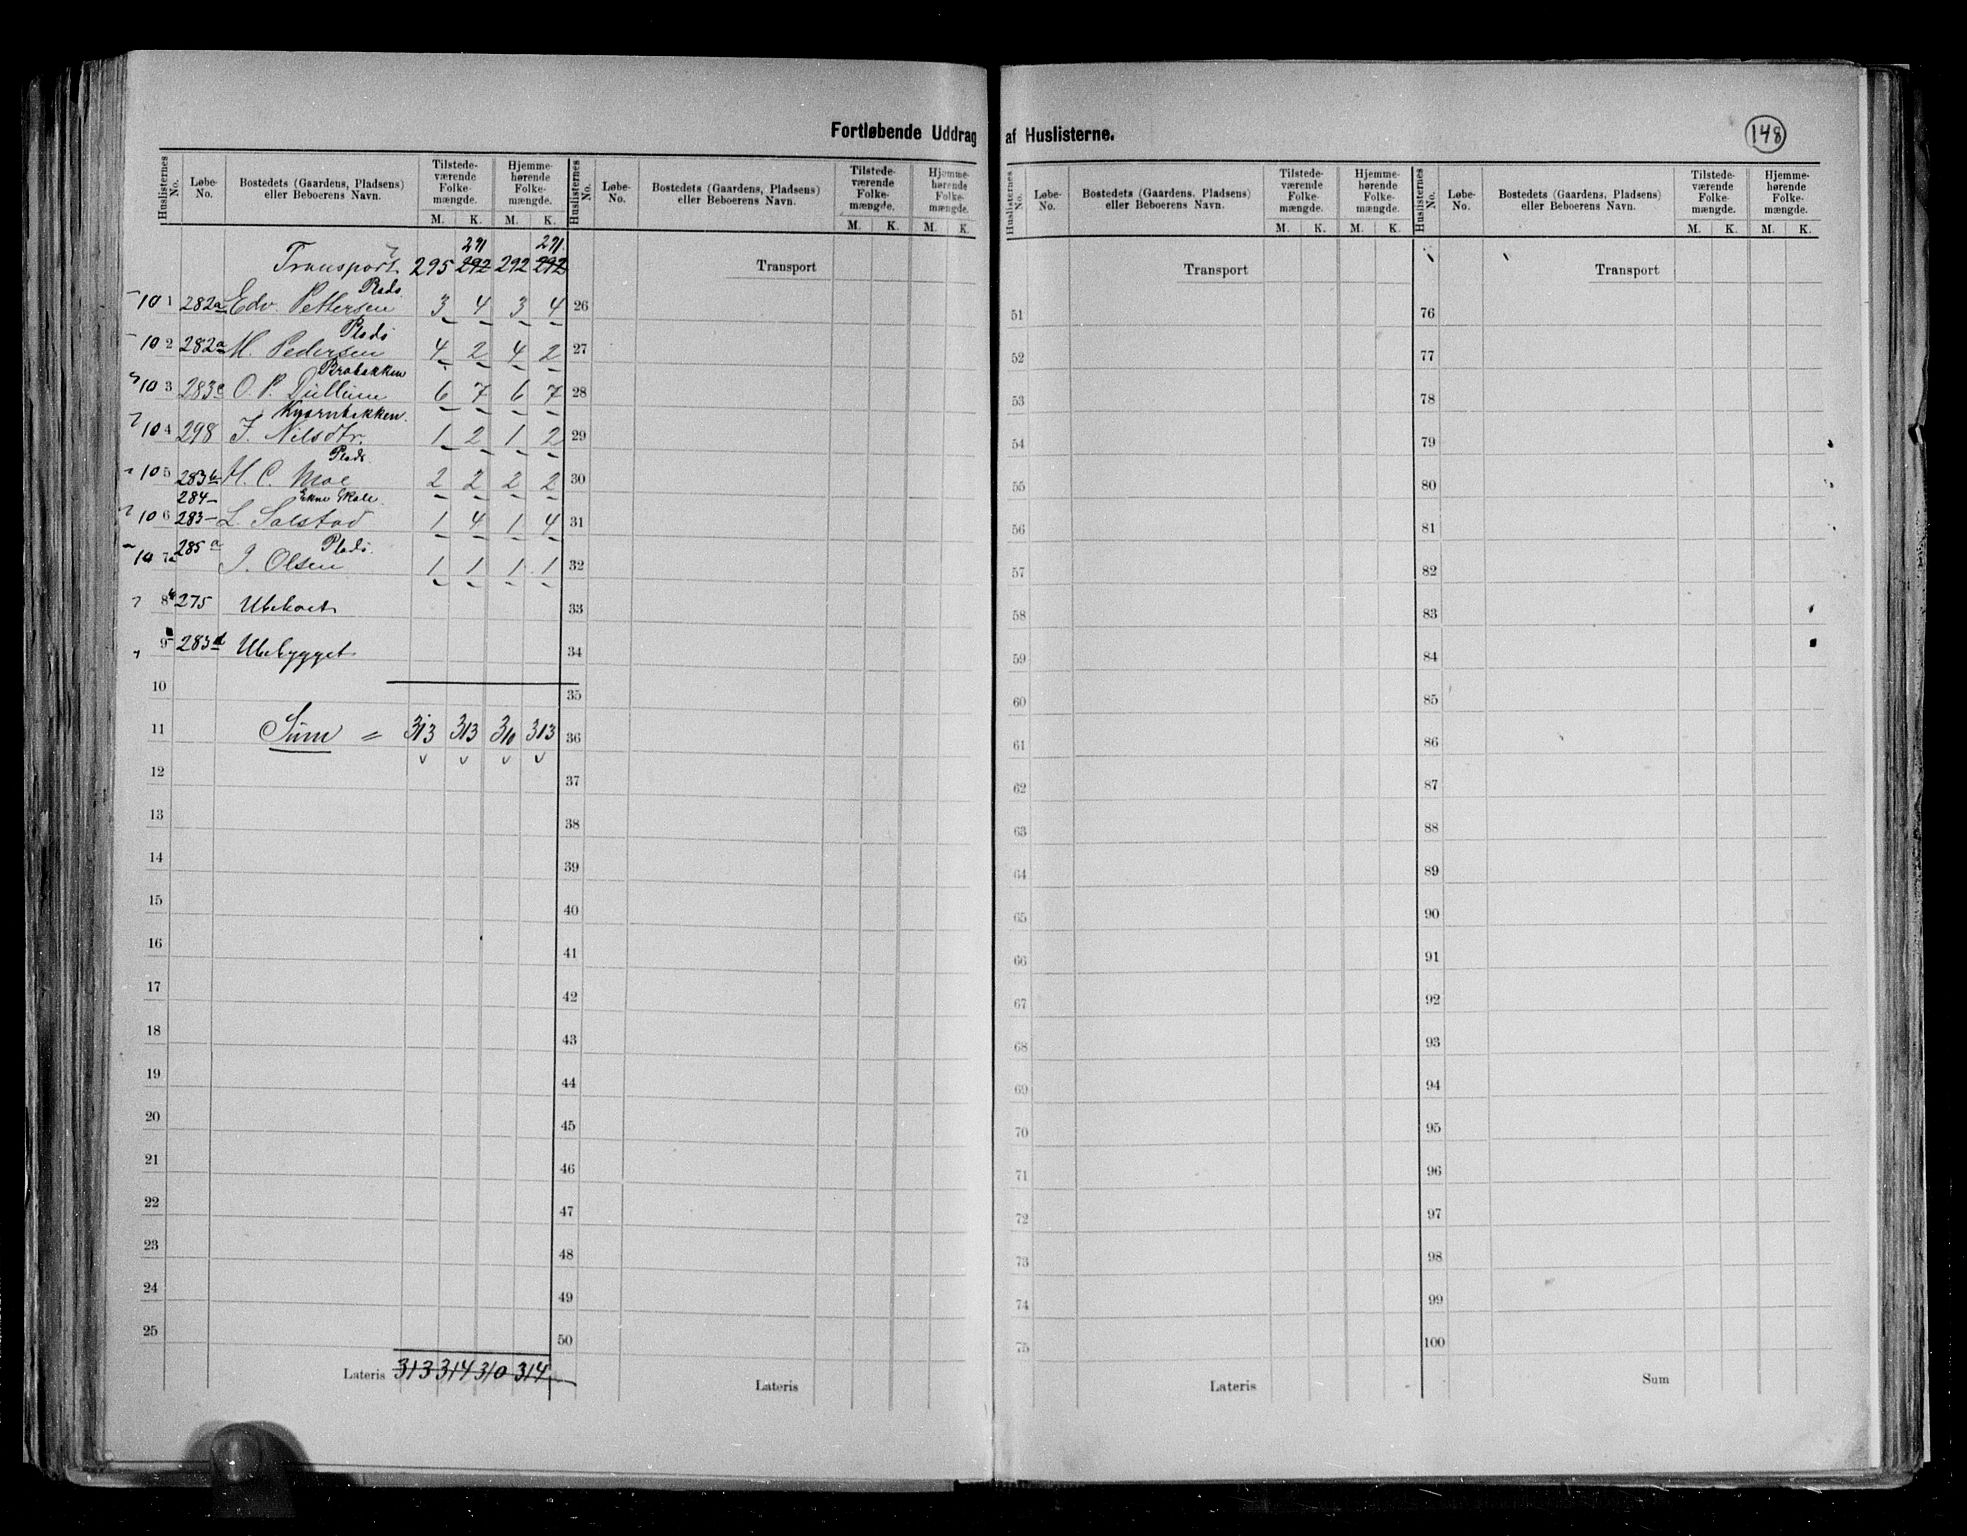 Fortløbende Uddrag af Huslisterne.
148
Huslisternes No. Løbe-No. Bostedets (Gaardens, Pladsens) eller Beboerens Navn. Tilstede-værende Folke-mængde. M. K. Hjemme-hørende Folke-mængde. M. K.
291 291.
Transport 295 292 292 292
Plads
101 282a Edv. Pettersen 3 4 3 4
Plads
102 282a M. Pedersen 4 2 4 2
Brobakken
103 283c O. P. Düllüm 6 7 6 7
Kvarnbakken.
104 298 J. Nilsdtr. 1 2 1 2
Plads
105 283b M. C. Moe 2 2 2 2
284 Ekne Skole
106 283 L. Salstad 1 4 1 4
285a Plads
107a J. Olsen 1 1 1 1
8 275 Ubeboet
9 283d Ubebygget
10
11 Süm = 313 313 310 313
12
13
14
15
16
17
18
19
20
21
22
23
24
25
Lateris 313 314 310 314
Huslisternes No. Løbe-No. Bostedets (Gaardens, Pladsens) eller Beboerens Navn. Tilstede-værende Folke-mængde. M. K. Hjemme-hørende Folke-mængde. M. K.
Transport
26
27
28
29
30
31
32
33
34
35
36
37
38
39
40
41
42
43
44
45
46
47
48
49
50
Lateris
Huslisternes No. Løbe-No. Bostedets (Gaardens, Pladsens) eller Beboerens Navn. Tilstede-værende Folke-mængde. M. K. Hjemme-hørende Folke-mængde. M. K.
Transport
51
52
53
54
55
56
57
58
59
60
61
62
63
64
65
66
67
68
69
70
71
72
73
74
75
Lateris
Huslisternes No. Løbe-No. Bostedets (Gaardens, Pladsens) eller Beboerens Navn. Tilstede-værende Folke-mængde. M. K. Hjemme-hørende Folke-mængde. M. K.
Transport
76
77
78
79
80
81
82
83
84
85
86
87
88
89
90
91
92
93
94
95
96
97
98
99
100
Sum